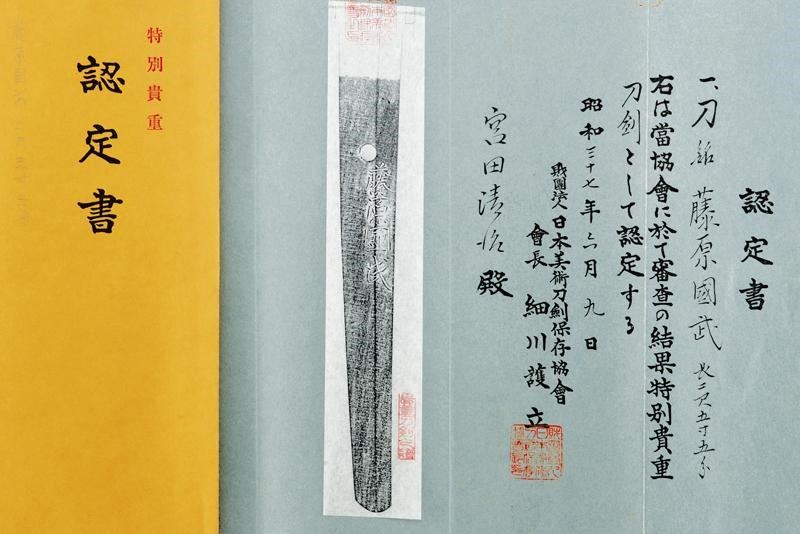 認定書
一、刀 銘 藤原國武 長 尺五寸五分
右は當協會に於て審査の結果特別貴重
刀劍として認定する
昭和三十七年六月九日
財團法人日本美術刀劍保存協會
會長 細川護立
宮田清 殿
藤原國武
特別貴重
認定書